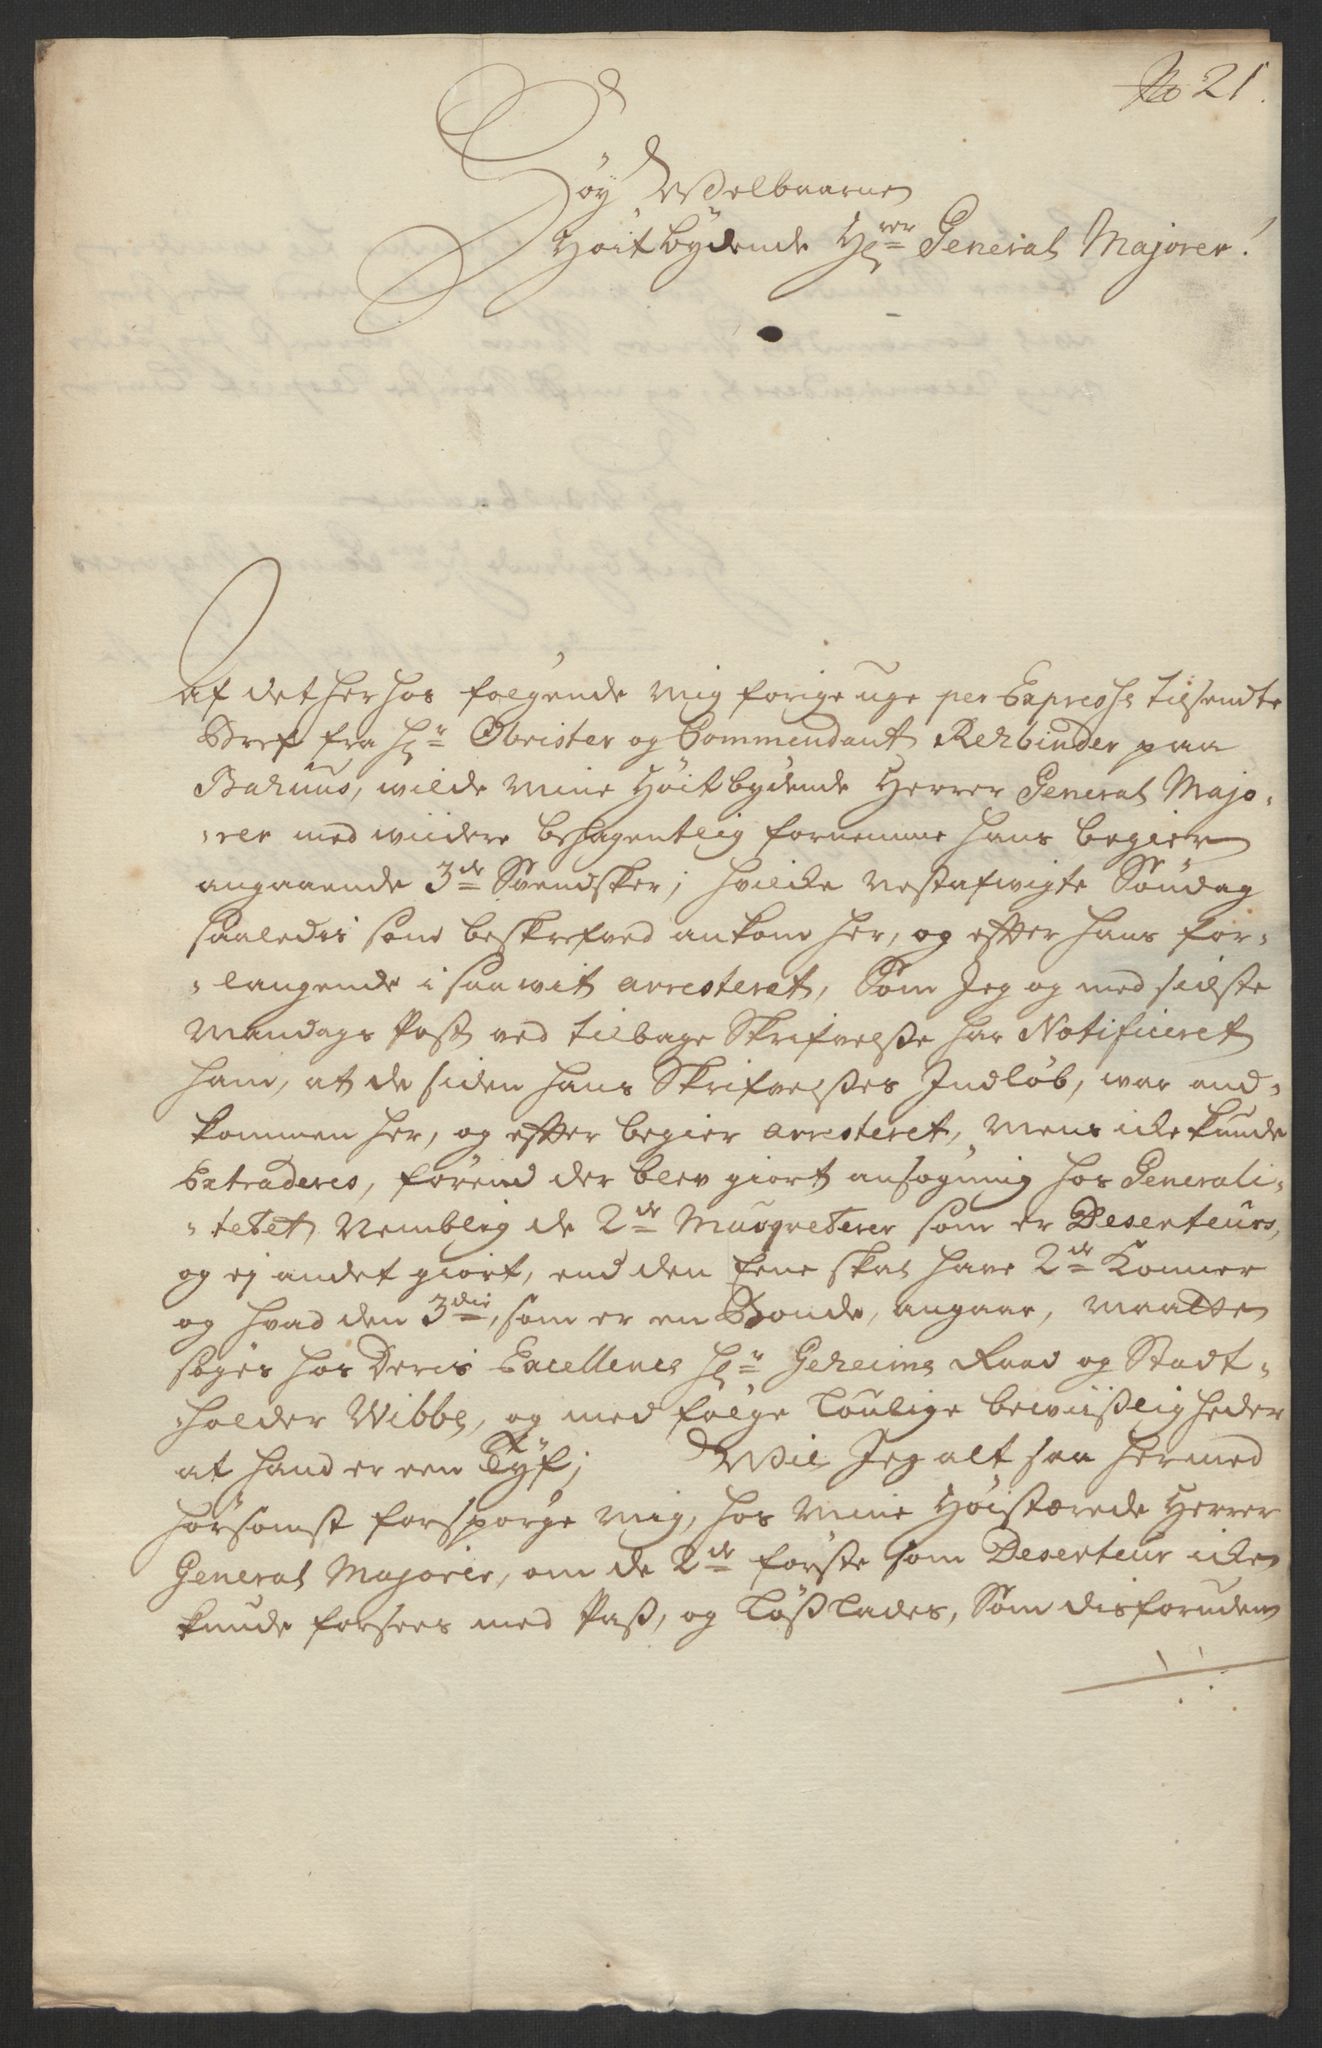 No 21.
Høy Welbaarne
Høitbydende Hrer General Majorer!
Af det herhos følgende mig forige uge per Expresse tilsendte
Bref fra Hr Obrister og Commendant Rehbinder paa
Bahuus, wilde mine Høitbydende Herrer General Majo-
-rer med wiidere behagentlig fornemme hans begier
angaaende 3de Svendsker; hvilke nestafwigte Søndag
saaledis som beskrefved ankom her, og efter hans for-
-langende i saa wit arresteret, Som Jeg og med sidste
Mandags Post ved tilbage Skrifvelße har Notificeret
ham, at de siden hans Skrifvelßes Indløb, war and-
kommen her, og efter begier arresteret, mens icke kunde
Extraderes, førend der blev giort ansøgning hos Generali-
-tetet, nemblig de 2de Musqueterer som er Deserteurs,
og ej andet giort, end den Eene skal have 2de Konner
og hvad den 3die, som er en Bonde, angaar, maatte
søges hos Deris Excellence Hr Geheime Raad og Stadt-
-holder Wibbe, og med følge loulige bewiißligheder
at hand er een Tyf; Wil Jeg alt saa hermed
hørsomst forspørge mig, hos mine Høistærede Herrer
General Majorer, om de 2de første som Deserteur icke
kunde forsees med Pass, og løßlades, Som disforuden